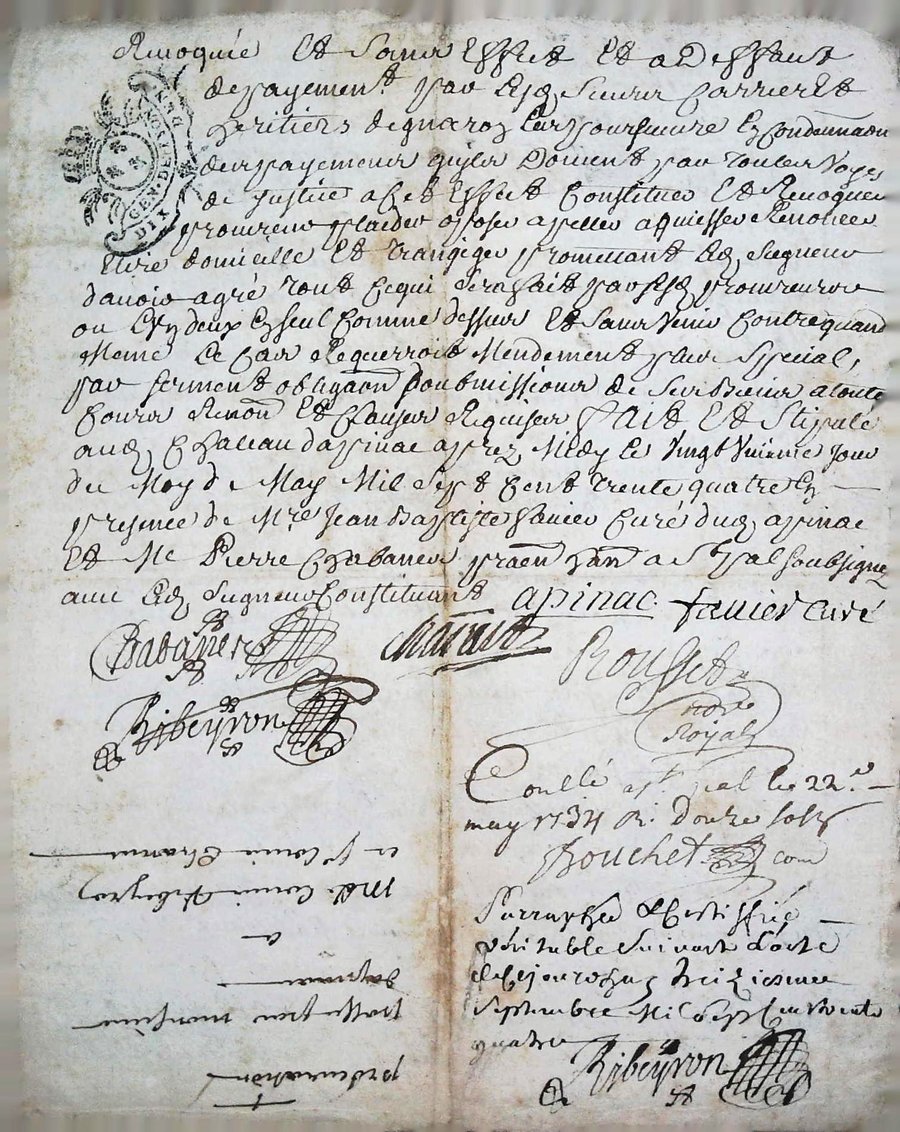 Revoquée Et Sans Effet Et a Deffaut
de payement par lesd. Sieurs Carrier Et
heritiers de les poursuivre En Condamnaon
des payements quils Doivent par Toutes Voyes
de justice a Cet Effet Constituer Et Revoquer
procureur plaider oposer apeller aquiesser Renoncer
Elire domicille Et Transiger promettant led. Seigneur
davoir agré Tout Ce qui Sera fait par sesd. procureurs
ou Lun deux Enseul Comme dessus Et Sans Venir Contre quand
Meme Le Cas Requerroit Mendement plus Special,
par serment obligaon Soubmissions de Ses Biens a toute
Cours Renon Et Clauses Requises fait Et Stipulé
aud. Chateau dapinac aprez Midy le Vingt Unieme Jour
du Moy de May Mil Sept Cent Trente quatre En
presence de Mre. Jean Baptiste favier Curé dud. apinac
Et Me Pierre Chabaner praen han a St pal Soubsignez
avec led. Seigneur Constituant
apinac. favier Curé
Chabaner
Rousset
notre
Royal
Ribeyron
Conllé a St. pal le 22.e
may 1734 R. douze sols
Bouchet com
Parraphé & Certiffié
veritable suivant L'acte
de Cejourdhuy treizieme
Septembre Mil Sept Cent trente
quatre
Ribeyron
GEN. DE LYON
DIX DEN
procuration
passée par monsieur
dapinac
a
Me. Louis Ribeyron
et Sr. Louis